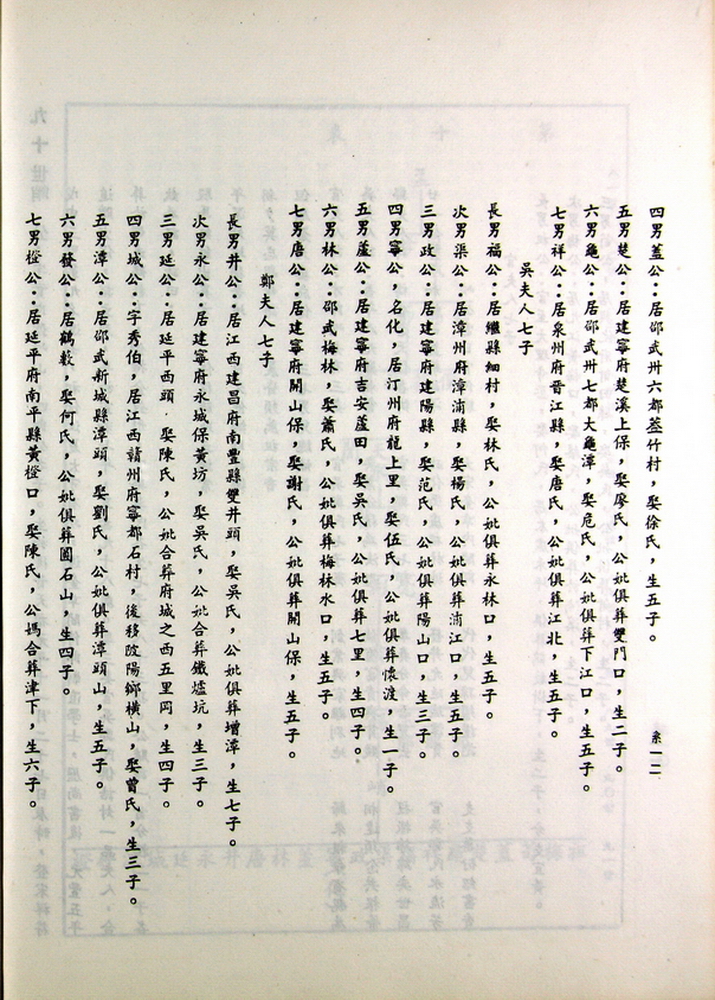 四男蓋公：居邵武卅六都蓋竹村，娶徐氏，生五子。
五男楚公：居建寧府楚溪上保，娶廖氏，公妣俱葬雙門口，生二子。
六男龜公：居邵武卅七都大龜潭，娶危氏，公妣俱葬下江口，生五子。
七男祥公：居泉州府晋江縣，娶唐氏，公妣俱葬江北，生五子。
吳夫人七子
長男福公：居繼縣細村，娶林氏，公妣俱葬永林口，生五子。
次男渠公：居漳州府漳浦縣，娶楊氏，公妣俱葬浦江口，生五子。
三男政公：居建寧府建陽縣，娶范氏，公妣俱葬陽山口，生三子。
四男寧公，名化，居汀州府龍上里，娶伍氏，公妣俱葬懷渡，生一子。
五男蘆公：居建寧府吉安蘆田，娶吳氏，公妣俱葬七里，生四子。
六男林公：邵武梅林，娶蕭氏，公妣俱葬梅林水口，生五子。
七男唐公：居建寧府開山保，娶謝氏，公妣俱葬開山保，生五子。
鄭夫人七子
長男井公：居江西建昌府南豐縣雙井頭，娶吳氏，公妣俱葬增潭，生七子。
次男永公：居建寧府永城保黃坊，娶吳氏，公妣合葬鐵爐坑，生三子。
三男延公：居延平西頭，娶陳氏，公妣合葬府城之西五里岡，生四子。
四男城公：字秀伯，居江西贛州府寧都石村，後移陂陽鄉橫山，娶曾氏，生三子。
五男潭公：居邵武新城縣潭頭，娶劉氏，公妣俱葬潭頭山，生五子。
六男發公：居鶴藪，娶何氏，公妣俱葬圓石山，生四子。
七男橙公：居延平府南平縣黃橙口，娶陳氏，公媽合葬津下，生六子。
系一二